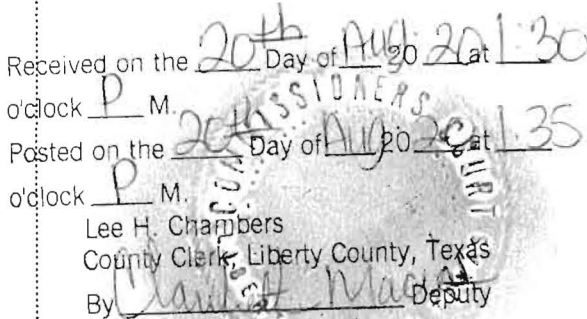 Received on the 20th Day of Aug 20 20 at 1:30
o'clock P M.
Posted on the 20th Day of Aug 20 20 at 1:35
o'clock P M.
Lee H. Chambers
County Clerk, Liberty County, Texas
By Deputy
COMMISSIONERS COURT